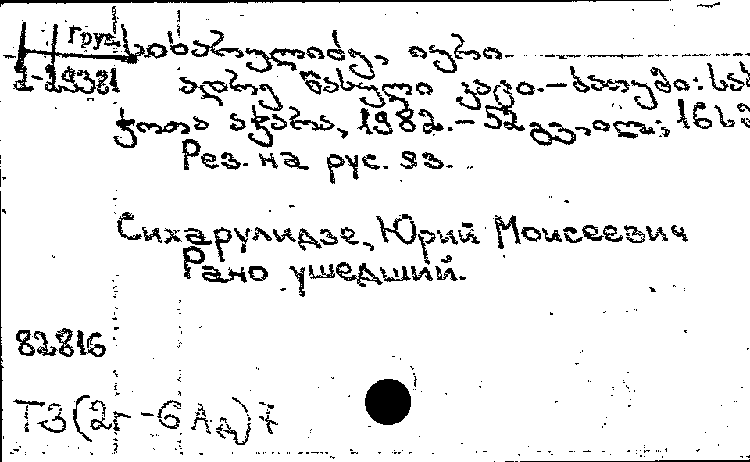 Груз.
სიხარულიძე, იური
2-29381 ადრე წასული კაცი.–ბათუმი: საბ
ჭოთა აჭარა, 1982.–52 გვ., ილ.; 16 სმ
Рез. на рус. яз.
Сихарулидзе, Юрий Моисеевич
Рано ушедший.
82816
Т3(2Г-6Ад)7